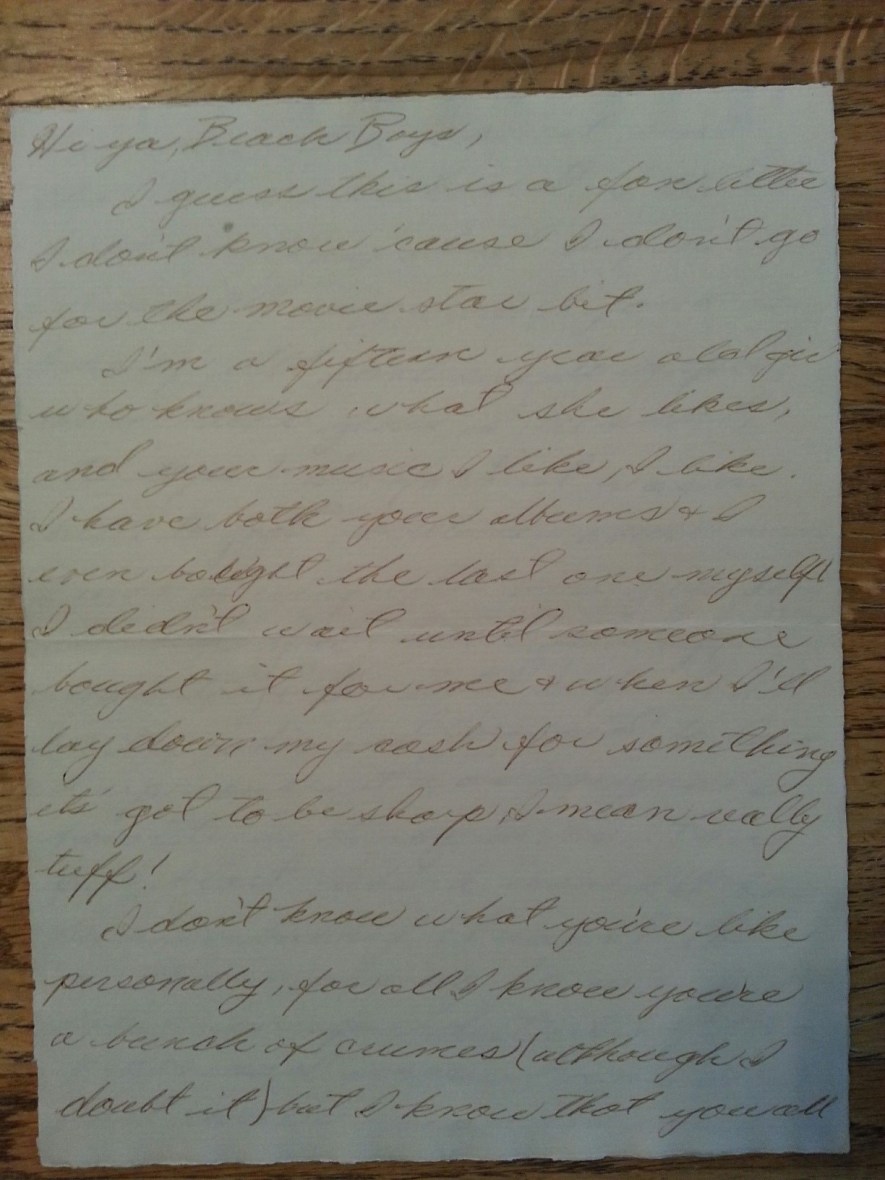 Hi ya, Beach Boys,
I guess this is a fan letter
I don't know 'cause I don't go
for the movie star bit.
I'm a fifteen year old girl
who knows what she likes,
and your music I like, I like.
I have both your albums & I
even bought the last one myself!
I didn't wait until someone
bought it for me & when I'll
lay down my cash for something
its' got to be sharp, I mean really
tuff!
I don't know what you're like
personally, for all I know you're
a bunch of crumes (although I
doubt it) but I know that you all